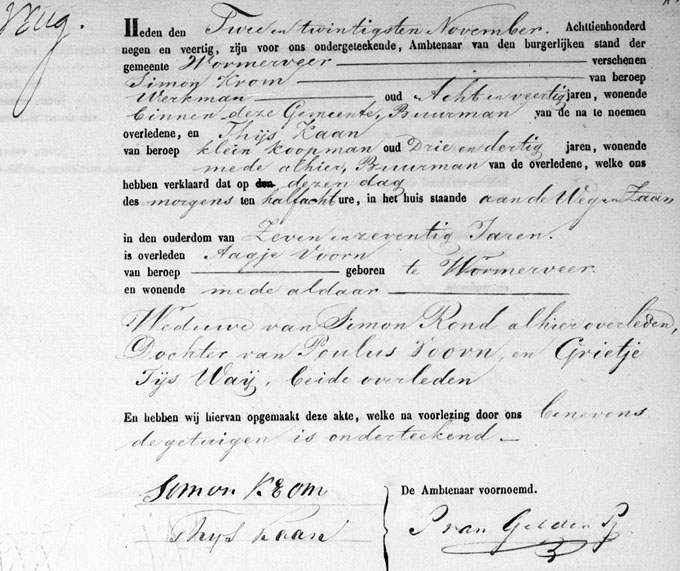 Heden den Twee en twintigsten November. Achttienhonderd
negen en veertig, zijn voor ons ondergeteekende, Ambtenaar van den burgerlijken stand der
gemeente Wormerveer verschenen
Simon Krom van beroep
Werkman oud Acht en veertig jaren, wonende
binnen deze Gemeente, Buurman van de na te noemen
overledene, en Thijs Kaan
van beroep klein koopman oud Drie en dertig jaren, wonende
mede alhier, Buurman van de overledene, welke ons
hebben verklaard dat op dezen dag
des morgens ten half acht ure, in het huis staande aan de Weg en Zaan
in den ouderdom van Zeven en zeventig Jaren.
is overleden Aagje Voorn
van beroep geboren te Wormerveer.
en wonende mede aldaar
Weduwe van Simon Rond alhier overleden,
Dochter van Poulus Voorn, en Grietje
Tijs Waij, beide overleden
En hebben wij hiervan opgemaakt deze akte, welke na voorlezing door ons benevens
de getuigen is onderteekend.
Simon Krom
Thijs Kaan
De Ambtenaar voornoemd.
P van Gelder Pz